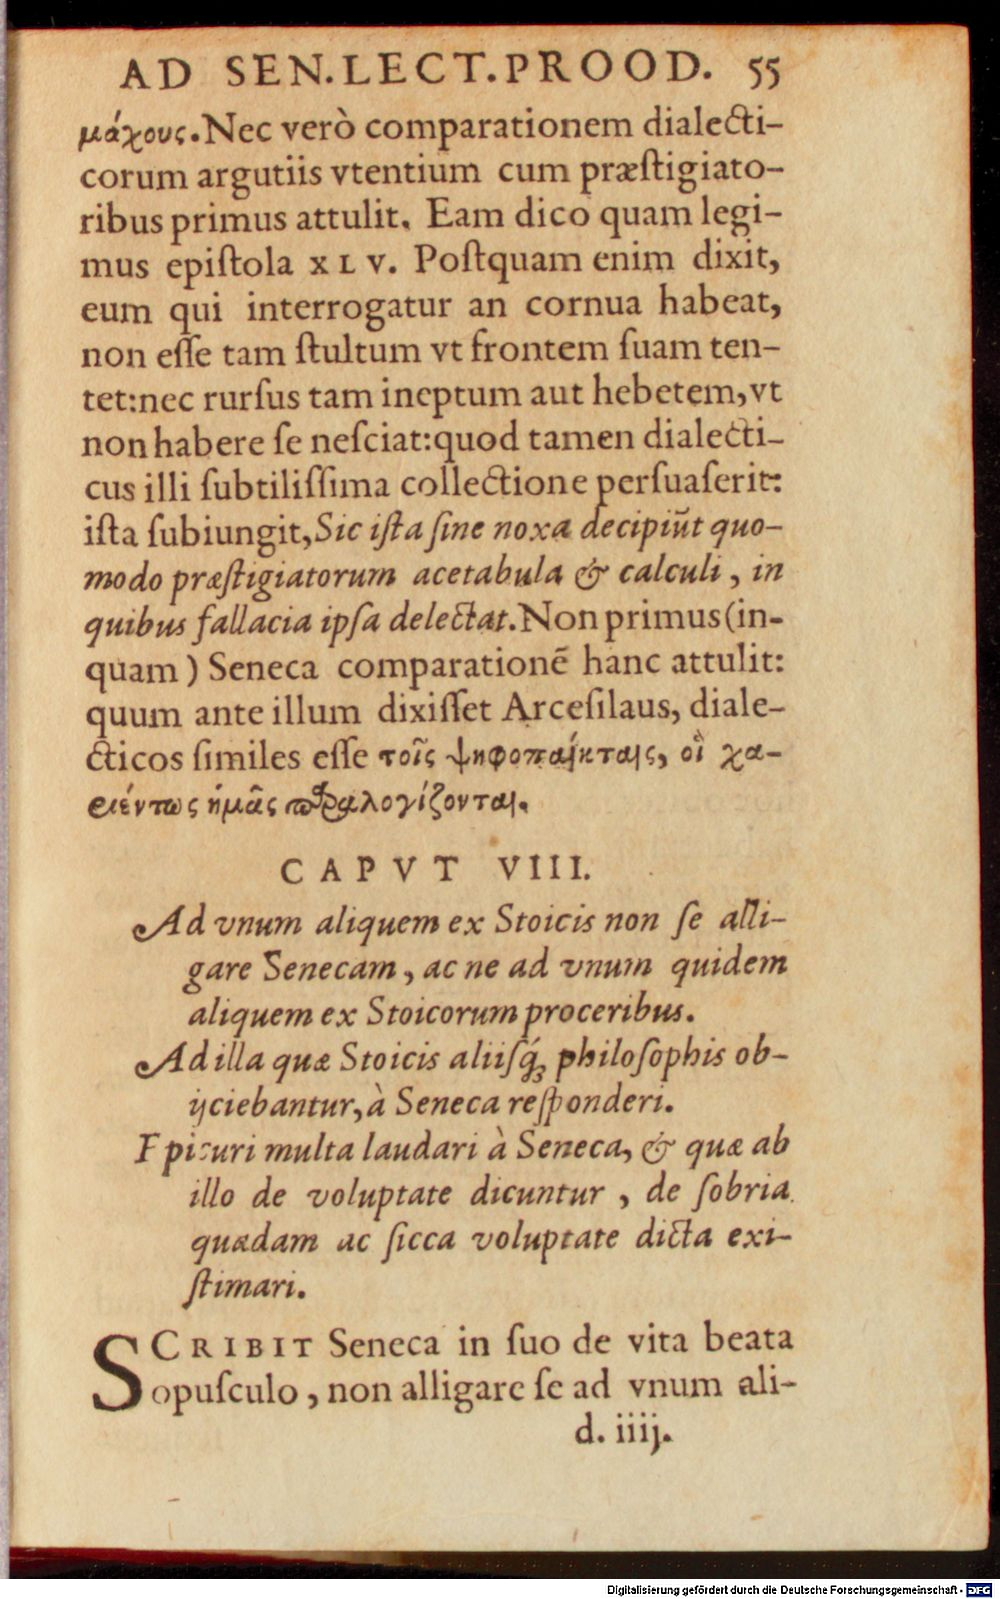 AD SEN.LECT.PROOD. 55
μάχους. Nec verò comparationem dialecti-
corum argutiis vtentium cum præſtigiato-
ribus primus attulit. Eam dico quam legi-
mus epiſtola XLV. Poſtquam enim dixit,
eum qui interrogatur an cornua habeat,
non eſſe tam ſtultum vt frontem ſuam ten-
tet:nec rurſus tam ineptum aut hebetem,vt
non habere ſe neſciat:quod tamen dialecti-
cus illi ſubtiliſſima collectione perſuaſerit:
iſta ſubiungit,Sic iſta ſine noxa decipiũt quo-
modo præſtigiatorum acetabula & calculi, in
quibus fallacia ipſa delectat.Non primus(in-
quam) Seneca comparationẽ hanc attulit:
quum ante illum dixiſſet Arceſilaus, diale-
cticos ſimiles eſſe τοῖς ψηφοπαίκταις, οἳ χα-
ριέντως ἡμᾶς παραλογίζονται.
CAPVT VIII.
Ad vnum aliquem ex Stoicis non ſe alli-
gare Senecam, ac ne ad vnum quidem
aliquem ex Stoicorum proceribus.
Ad illa quæ Stoicis aliiſq́; philoſophis ob-
ijciebantur, à Seneca reſponderi.
Epicuri multa laudari à Seneca, & quæ ab
illo de voluptate dicuntur, de ſobria
quadam ac ſicca voluptate dicta exi-
ſtimari.
SCRIBIT Seneca in ſuo de vita beata
opuſculo, non alligare ſe ad vnum ali-
d. iiij.
Digitalisierung gefördert durch die Deutsche Forschungsgemeinschaft - DFG